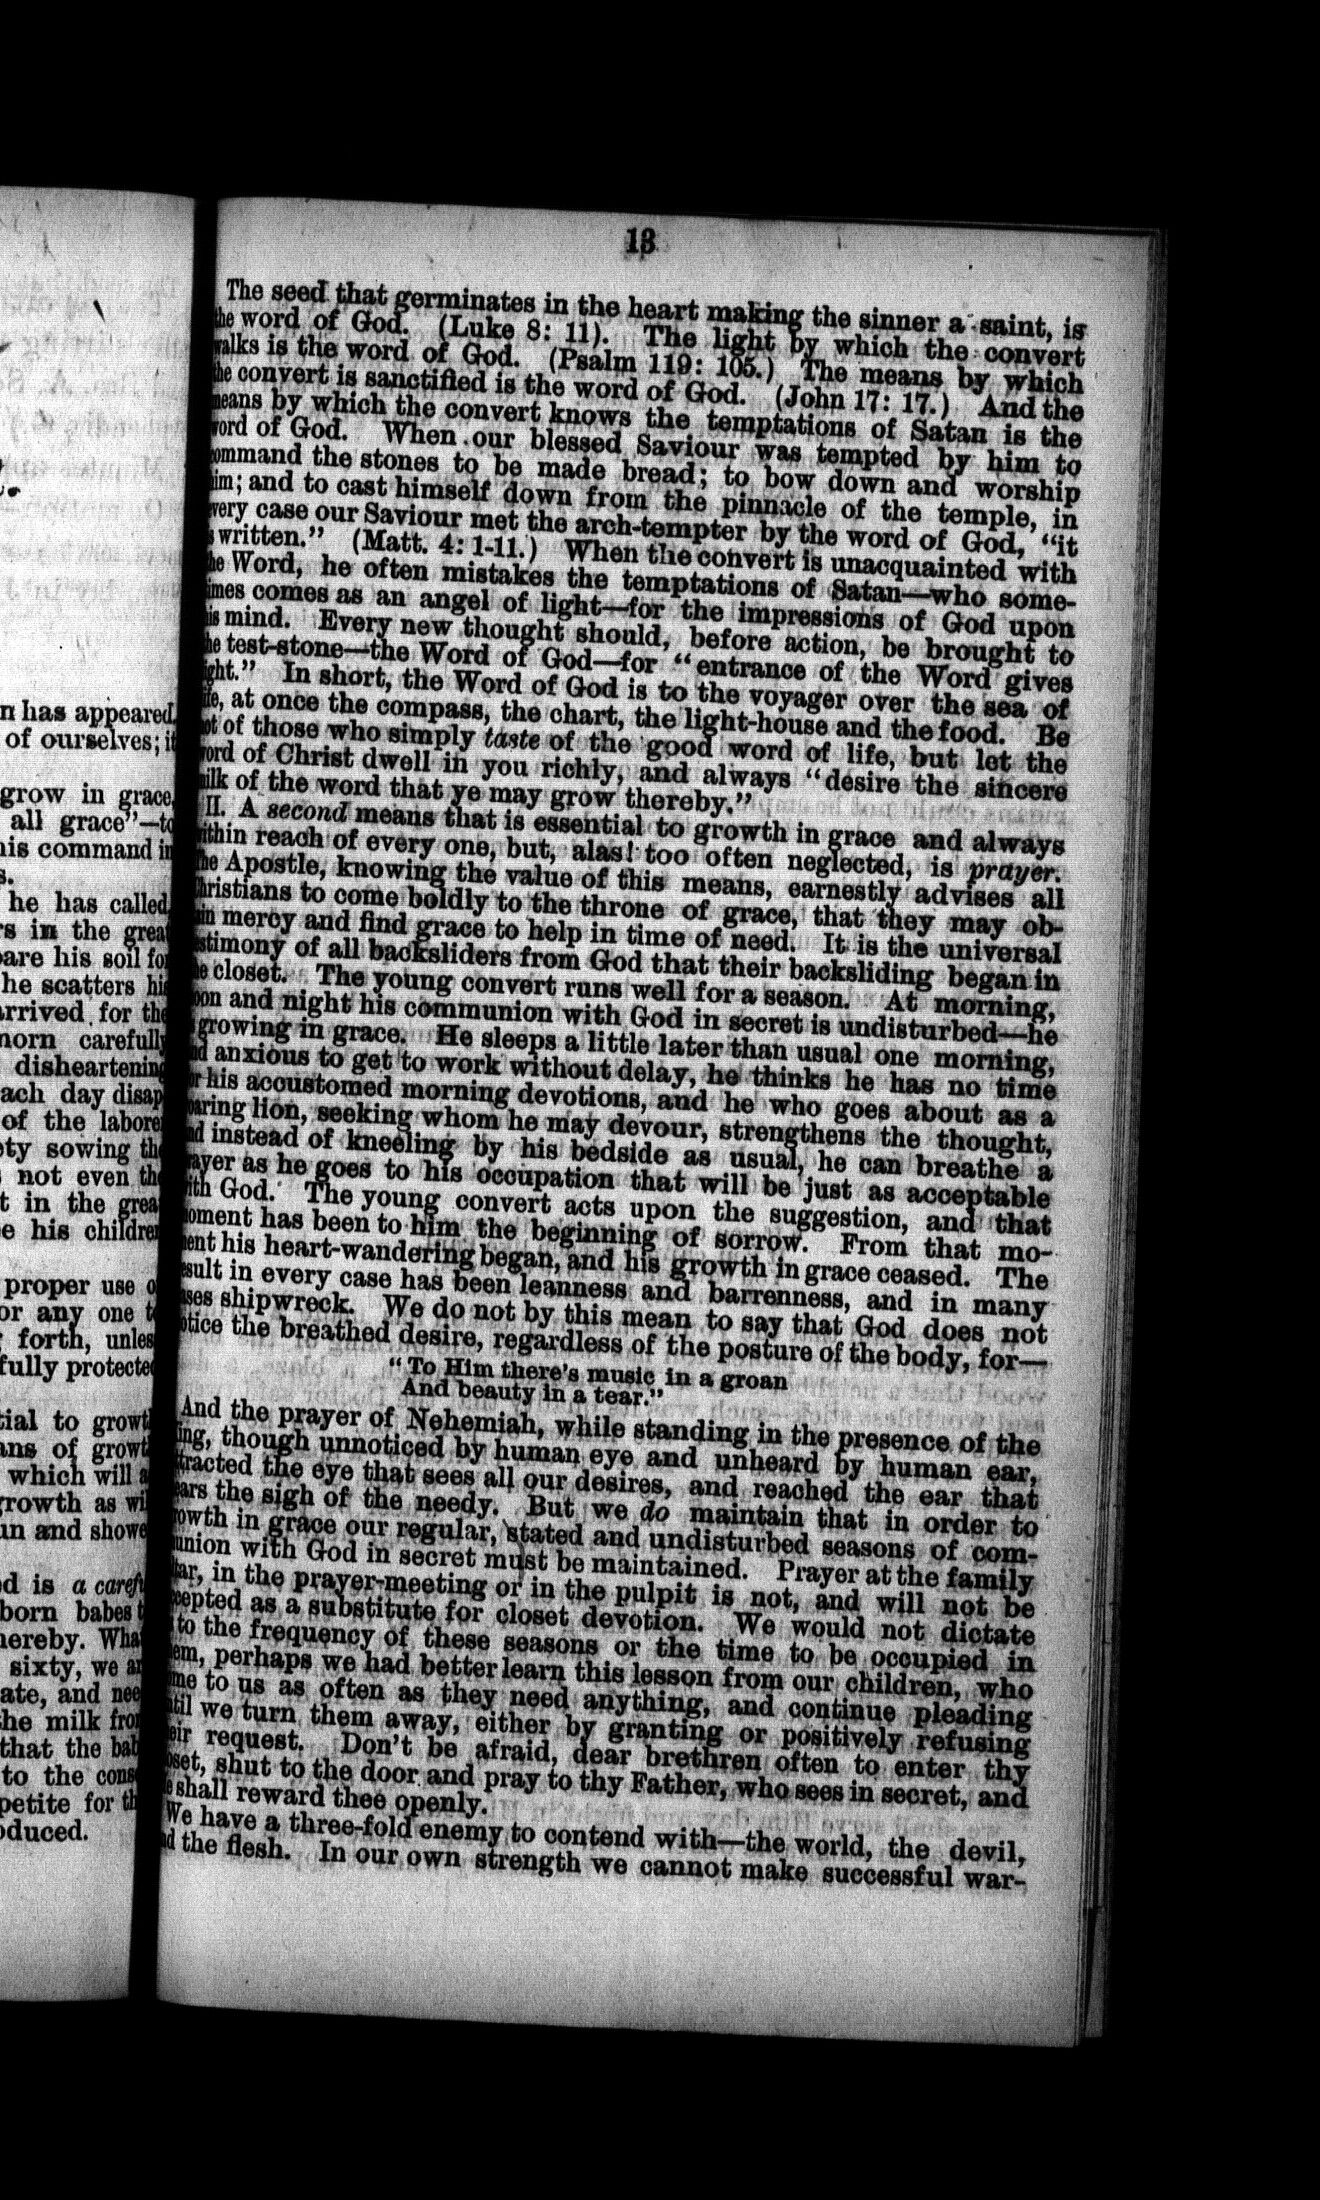 n has appeared,
of ourselves; it
grow in grace,
all grace"—to
his command in
s.
he has called,
rs in the great
pare his soil for
he scatters his
arrived for the
morn carefully
disheartening
ach day disap
of the labore
ety sowing the
not even the
t in the grea
e his children
proper use o
or any one to
forth, unles
fully protected
tial to growt
ans of growt
which will a
growth as wi
un and showe
ed is a carefu
born babes t
hereby. What
sixty, we ar
ate, and nee
the milk fro
that the bab
to the cons
petite for th
oduced.
13
The seed that germinates in the heart making the sinner a saint, is
the word of God. (Luke 8: 11). The light by which the convert
walks is the word of God. (Psalm 119: 105.) The means by which
the convert is sanctified is the word of God. (John 17: 17.) And the
means by which the convert knows the temptations of Satan is the
word of God. When our blessed Saviour was tempted by him to
ommand the stones to be made bread; to bow down and worship
him; and to cast himself down from the pinnacle of the temple, in
every case our Saviour met the arch-tempter by the word of God, "it
s written." (Matt. 4: 1-11.) When the convert is unacquainted with
the Word, he often mistakes the temptations of Satan—who some-
times comes as an angel of light—for the impressions of God upon
his mind. Every new thought should, before action, be brought to
the test-stone—the Word of God—for "entrance of the Word gives
ight." In short, the Word of God is to the voyager over the sea of
life, at once the compass, the chart, the light-house and the food. Be
not of those who simply taste of the good word of life, but let the
word of Christ dwell in you richly, and always "desire the sincere
milk of the word that ye may grow thereby."
II. A second means that is essential to growth in grace and always
within reach of every one, but, alas! too often neglected, is prayer.
The Apostle, knowing the value of this means, earnestly advises all
Christians to come boldly to the throne of grace, that they may ob-
ain mercy and find grace to help in time of need. It is the universal
estimony of all backsliders from God that their backsliding began in
he closet. The young convert runs well for a season. At morning,
oon and night his communion with God in secret is undisturbed—he
s growing in grace. He sleeps a little later than usual one morning,
nd anxious to get to work without delay, he thinks he has no time
or his accustomed morning devotions, and he who goes about as a
oaring lion, seeking whom he may devour, strengthens the thought,
nd instead of kneeling by his bedside as usual, he can breathe a
rayer as he goes to his occupation that will be just as acceptable
ith God. The young convert acts upon the suggestion, and that
moment has been to him the beginning of sorrow. From that mo-
ment his heart-wandering began, and his growth in grace ceased. The
esult in every case has been leanness and barrenness, and in many
ases shipwreck. We do not by this mean to say that God does not
otice the breathed desire, regardless of the posture of the body, for—
"To Him there's music in a groan
And beauty in a tear."
And the prayer of Nehemiah, while standing in the presence of the
ing, though unnoticed by human eye and unheard by human ear,
ttracted the eye that sees all our desires, and reached the ear that
ears the sigh of the needy. But we do maintain that in order to
rowth in grace our regular, stated and undisturbed seasons of com-
union with God in secret must be maintained. Prayer at the family
tar, in the prayer-meeting or in the pulpit is not, and will not be
ccepted as a substitute for closet devotion. We would not dictate
to the frequency of these seasons or the time to be occupied in
em, perhaps we had better learn this lesson from our children, who
me to us as often as they need anything, and continue pleading
ntil we turn them away, either by granting or positively refusing
eir request. Don't be afraid, dear brethren often to enter thy
oset, shut to the door and pray to thy Father, who sees in secret, and
e shall reward thee openly.
We have a three-fold enemy to contend with—the world, the devil,
nd the flesh. In our own strength we cannot make successful war-